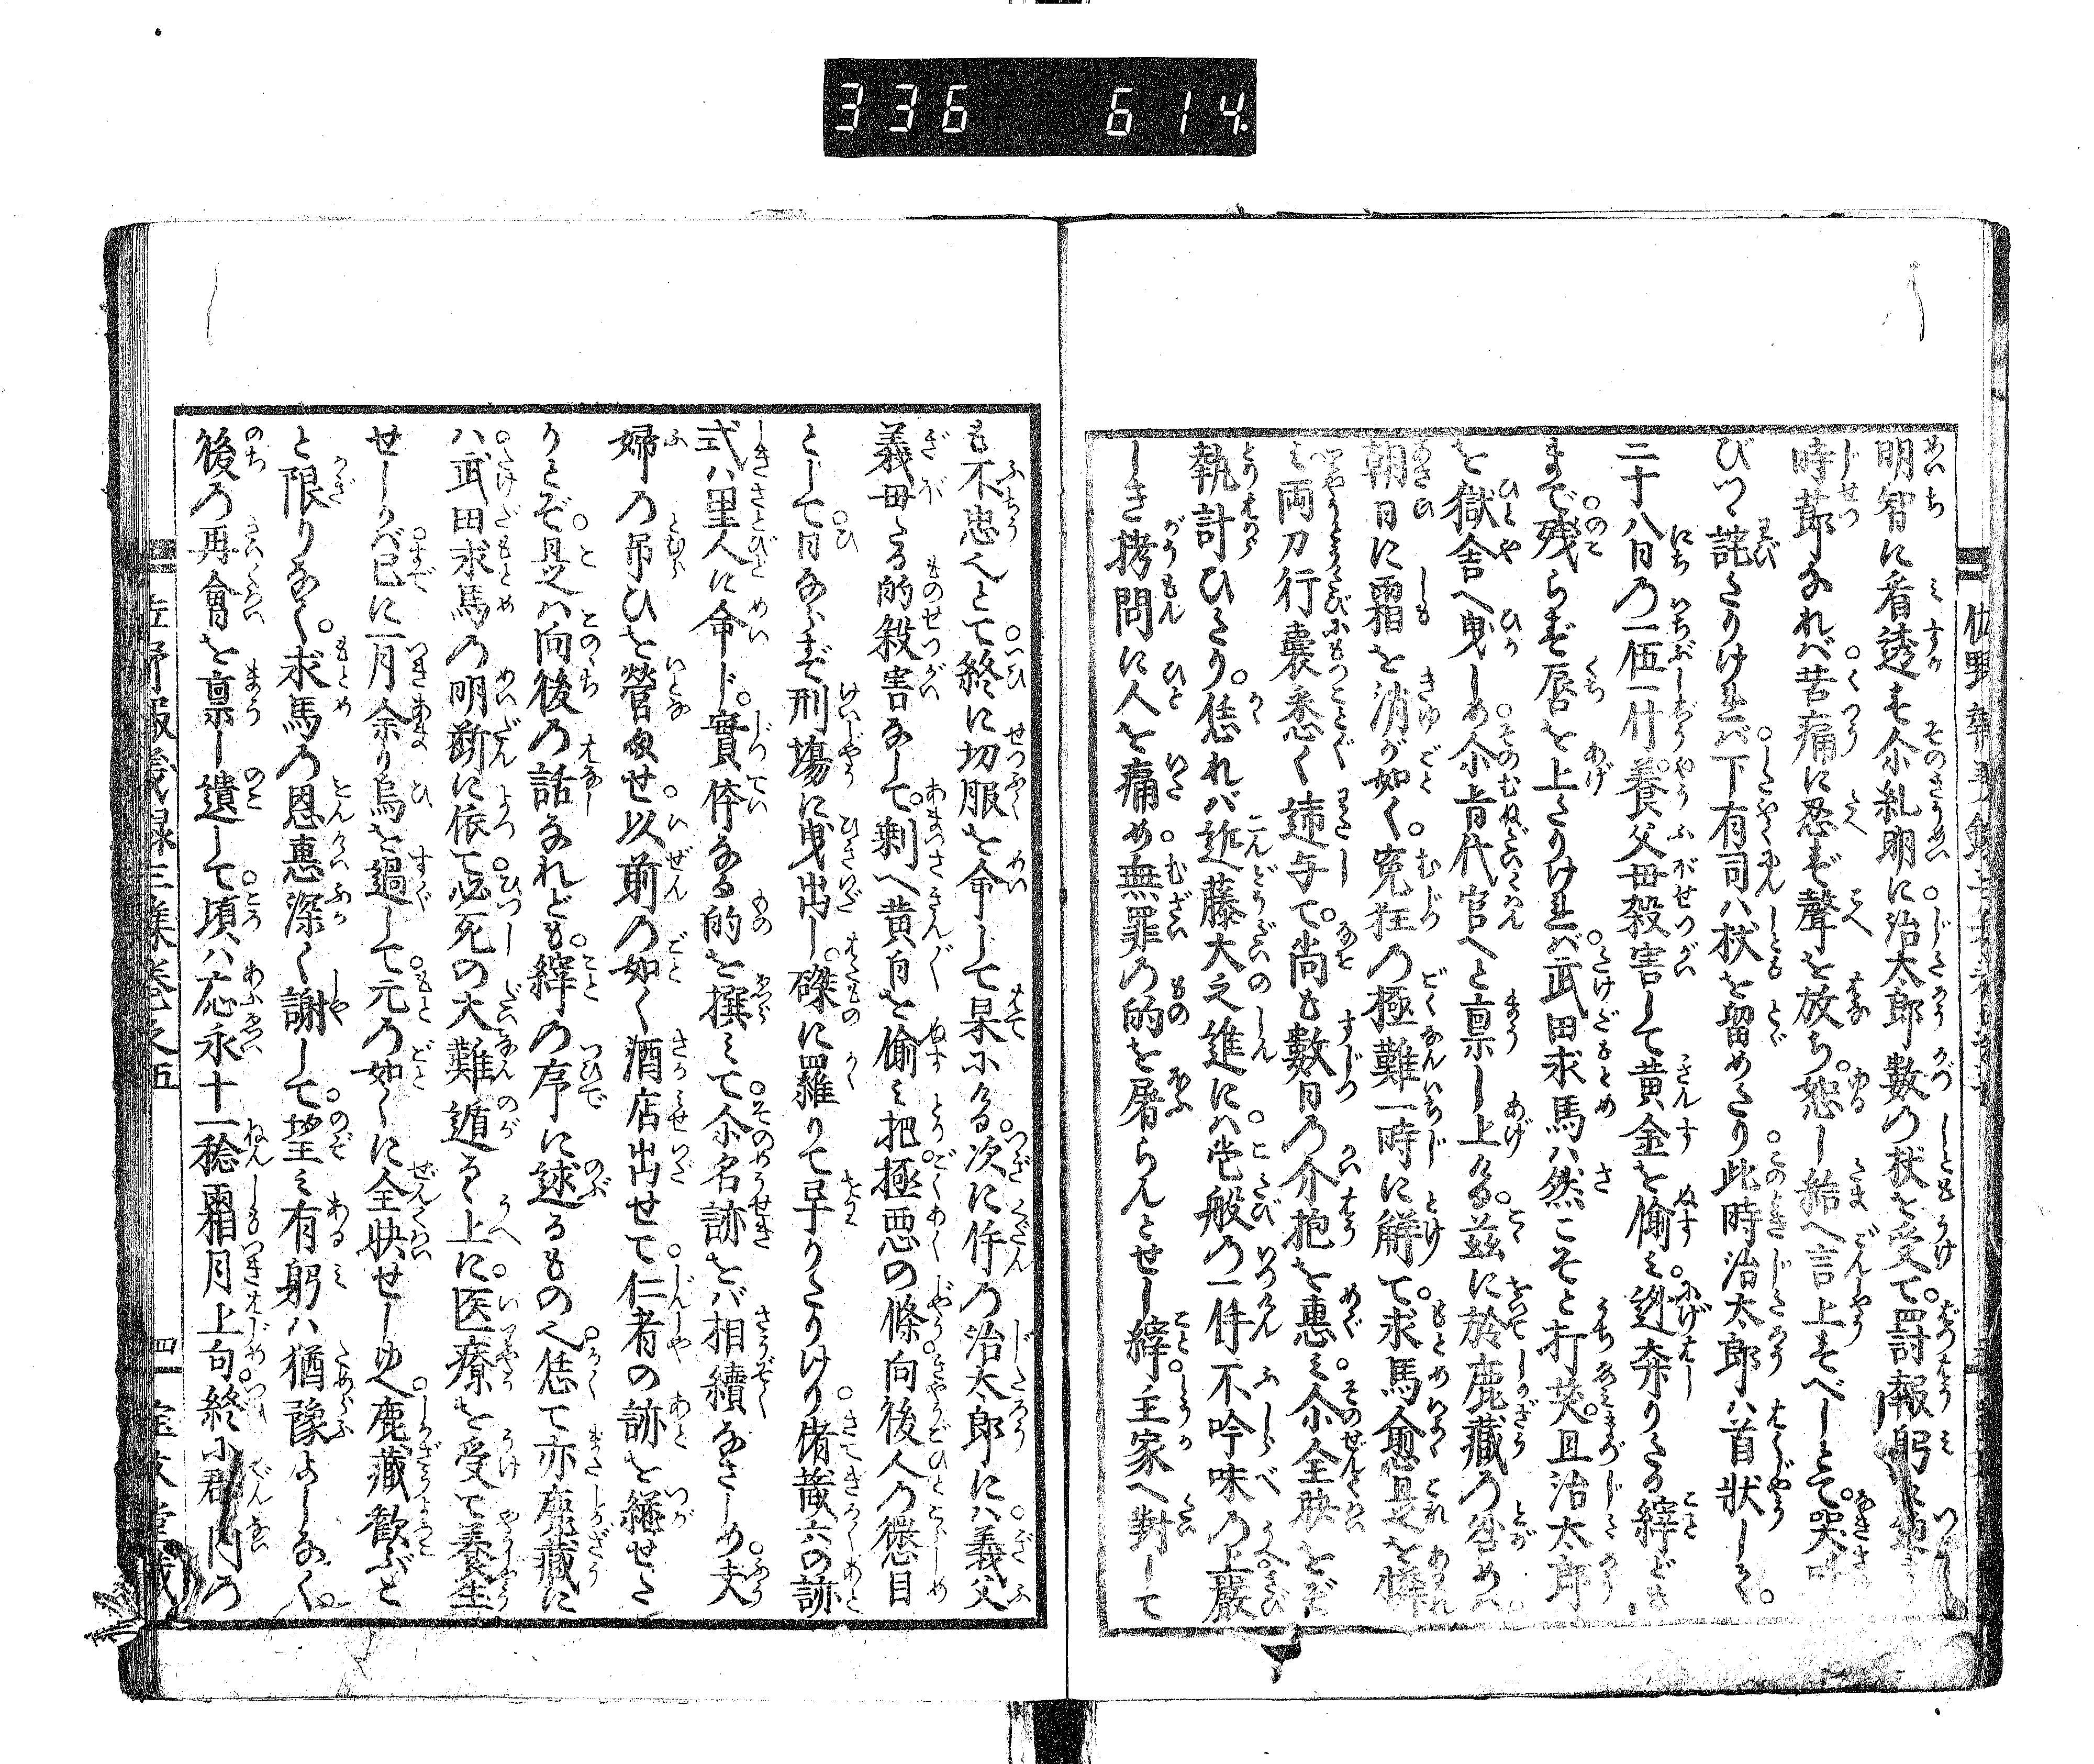 336 614
明智に看透さ尒糺明に治太郎數の杖を受て罸報躬に
時莭なれば苦痛に忍ず聲を放ち恕し給へ言上すべしとて哭
びつゝ詫たりければ下有司ハ杖を留めたり此時治太郎ハ首状しく
二十八日の一伍一什養父母殺害して黄金を偷み迯奔りたる縡ども
まで残らず唇を上たりければ武田求馬ハ然こそと打莢且治太郎
を獄舎へ曳しめ尒旨代官へと稟し上る茲に於鹿藏の咎めハ
朝日に霜を消が如く寃狂の極難一時に觧て求馬愈是を憐
み両刀行囊悉く遞与て尚も數日の介抱を惠み尒全快をぞ
執計ひたり恁れバ近藤大之進にハ這般の一件不吟味の上嚴
しき拷問に人を痛め無罪の的を屠らんとせし縡主家へ對して
も不忠也とて終に切服を命して杲ける次に仵の治太郎にハ義父
義母たる的殺害なして剰へ黄白を偷み把極悪の條向後人の懲目
として日ならず刑塲に曳出し磔に罹りて早りたりけり偖藏六の跡
式ハ里人に命じ實体なる的を撰みて尒名跡をバ相續なさしめ夫
婦の吊ひを營ませ以前の如く酒店出せて仁者の跡を継せた
りとぞ是ハ向後の話なれども縡の序に述るもの也恁て亦鹿藏に
ハ武田求馬の明断に依て必死の大難遁るゝ上に医療を受て養生
せしかバ已に一月余り烏を過して元の如くに全快せしゆへ鹿藏歓ぶと
と限りなく求馬の恩惠深く謝して望み有躬ハ猶豫よしなく
後の再會を稟し遺して頃ハ応永十一稔霜月上旬終に郡内の
佐野報義録三集巻之五 四